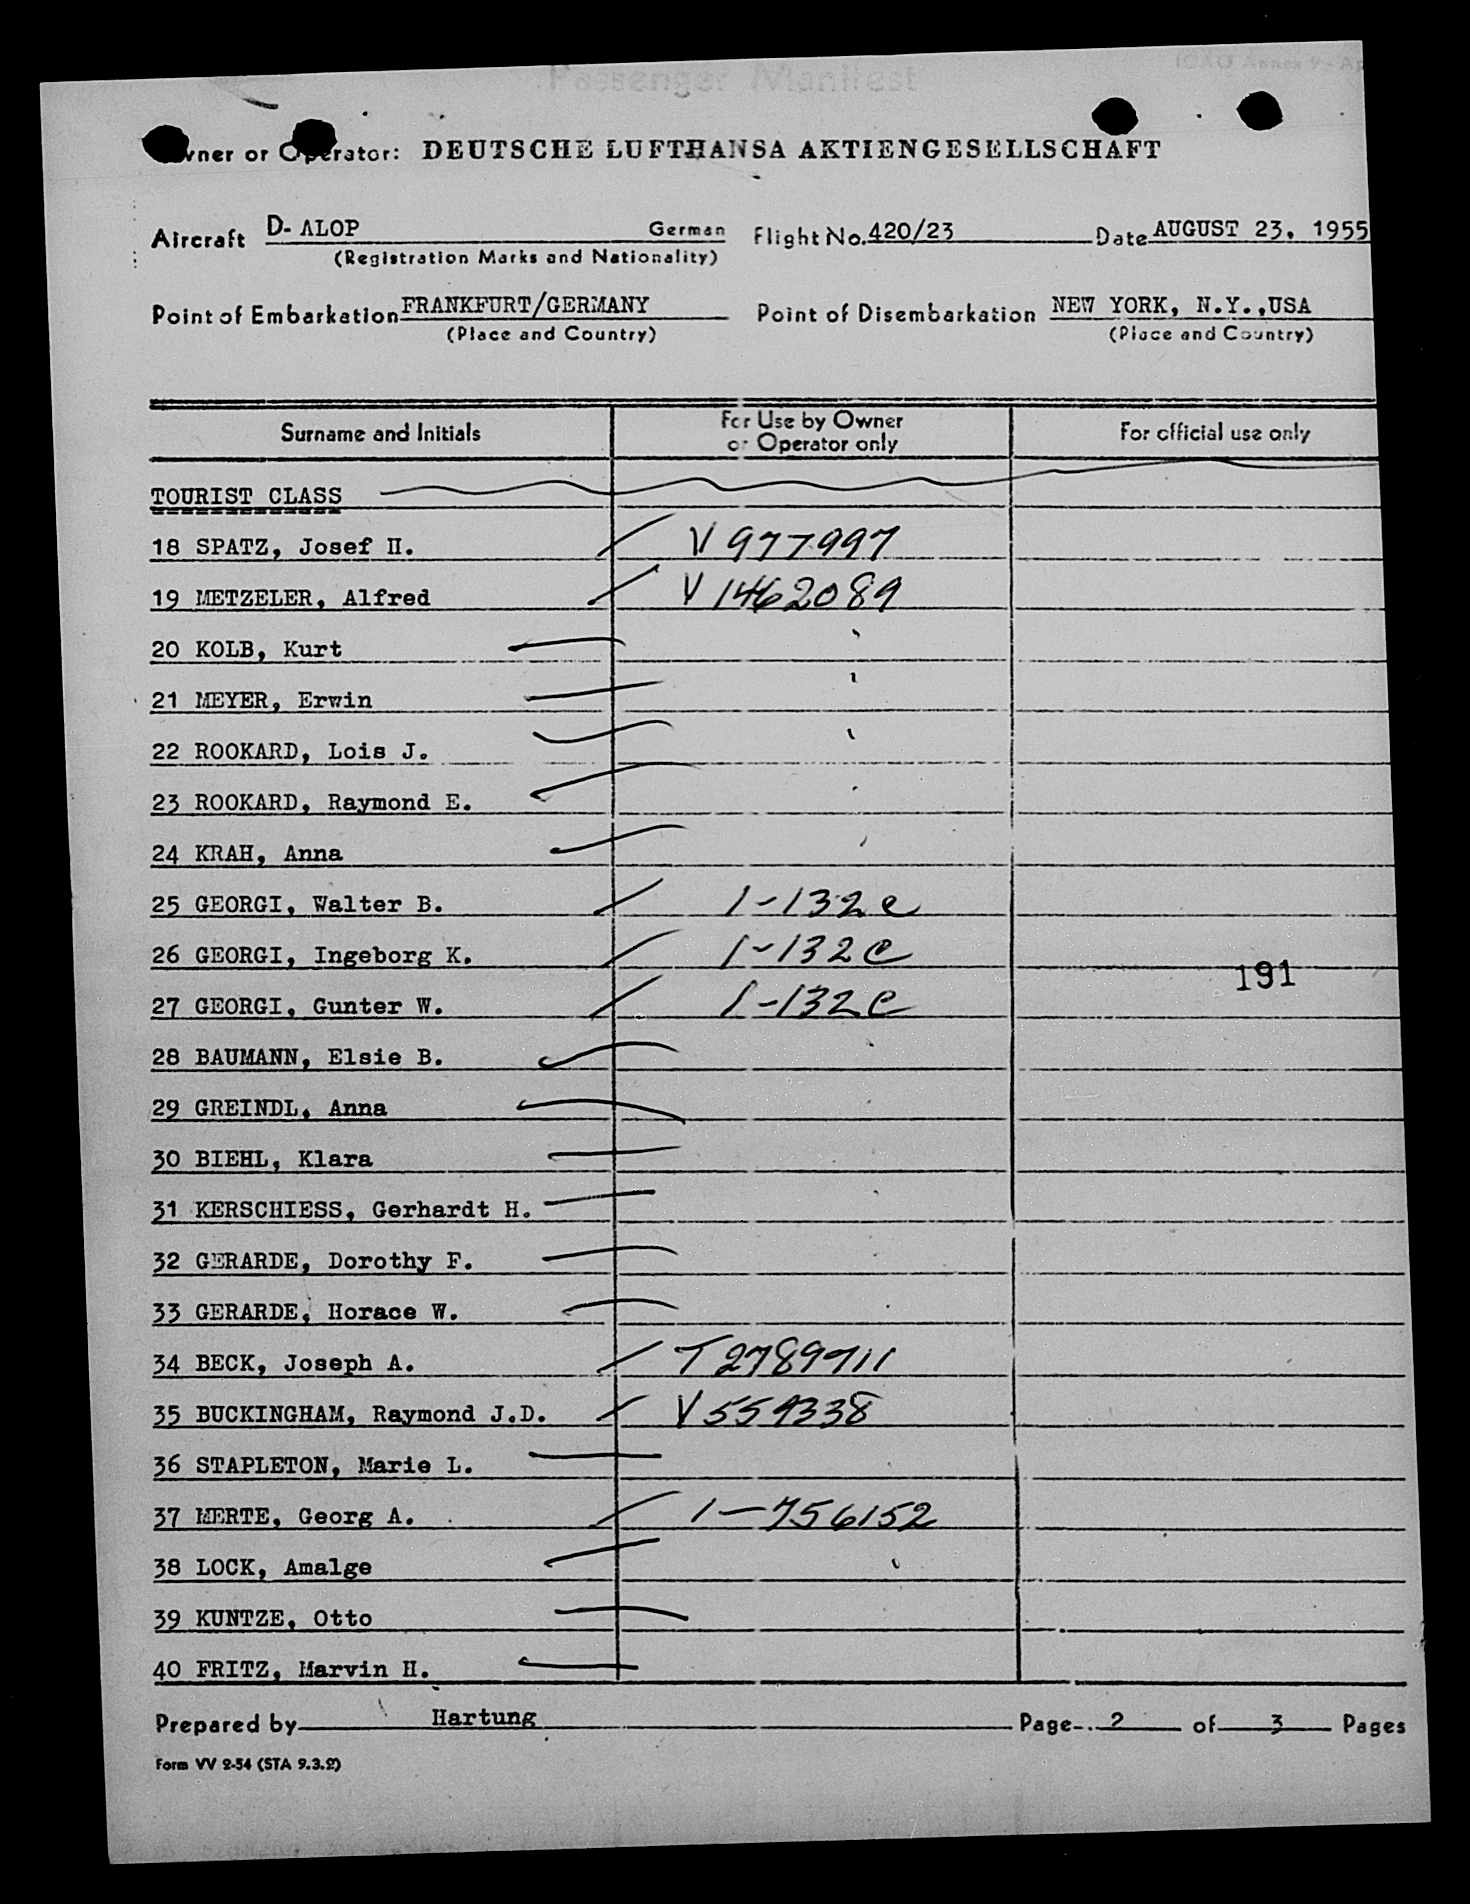 Passenger Manifest
ICAO Annex 9 - Ap
Owner or Operator: DEUTSCHE LUFTHANSA AKTIENGESELLSCHAFT
Aircraft D- ALOP German Flight No. 420/23 Date AUGUST 23, 1955
(Registration Marks and Nationality)
Point of Embarkation FRANKFURT/GERMANY Point of Disembarkation NEW YORK, N.Y.,USA
(Place and Country) (Place and Country)
Surname and Initials For Use by Owner or Operator only For official use only
TOURIST CLASS
18 SPATZ, Josef H. V 977997
19 METZELER, Alfred V 1462089
20 KOLB, Kurt
21 MEYER, Erwin
22 ROOKARD, Lois J.
23 ROOKARD, Raymond E.
24 KRAH, Anna
25 GEORGI, Walter B. 1-132e
26 GEORGI, Ingeborg K. 1-132e
191
27 GEORGI, Gunter W. 1-132e
28 BAUMANN, Elsie B.
29 GREINDL, Anna
30 BIEHL, Klara
31 KERSCHIESS, Gerhardt H.
32 GERARDE, Dorothy F.
33 GERARDE, Horace W.
34 BECK, Joseph A. T 2789711
35 BUCKINGHAM, Raymond J.D. V 559338
36 STAPLETON, Marie L.
37 MERTE, Georg A. 1-756152
38 LOCK, Amalge
39 KUNTZE, Otto
40 FRITZ, Marvin H.
Prepared by Hartung Page 2 of 3 Pages
Form VV 2-54 (STA 9.3.2)